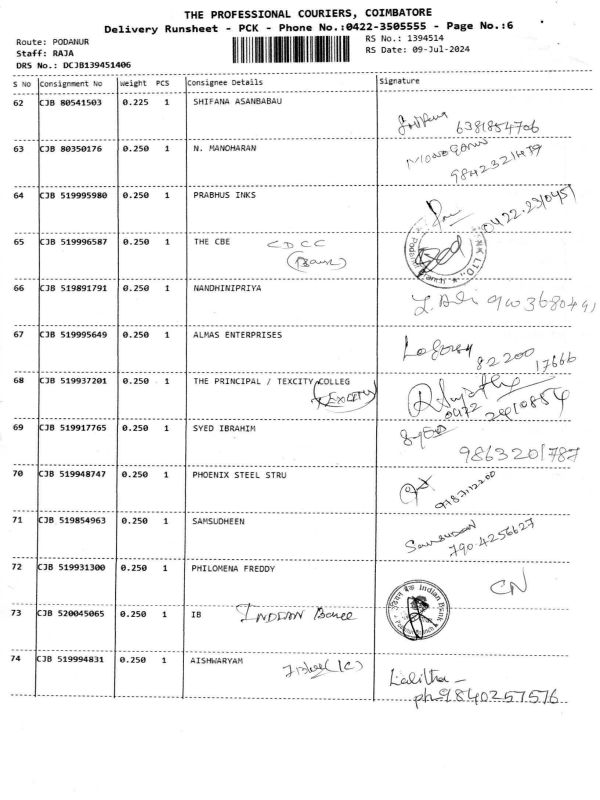 THE PROFESSIONAL COURIERS, COIMBATORE
Delivery Runsheet - PCK - Phone No.:0422-3505555 - Page No.:6
Route: PODANUR
RS No.: 1394514
Staff: RAJA
RS Date: 09-Jul-2024
DRS No.: DCJB139451406
S No Consignment No Weight PCS Consignee Details Signature
62 CJB 80541503 0.225 1 SHIFANA ASANBABAU
Shifana 6381854706
63 CJB 80350176 0.250 1 N. MANOHARAN
9842321479
64 CJB 519995980 0.250 1 PRABHUS INKS
0422-2310451
65 CJB 519996587 0.250 1 THE CBE CDCC
(Bank)
66 CJB 519891791 0.250 1 NANDHINIPRIYA
67 CJB 519995649 0.250 1 ALMAS ENTERPRISES
82200 17666
68 CJB 519937201 0.250 1 THE PRINCIPAL / TEXCITY COLLEG
0422 2410854
69 CJB 519917765 0.250 1 SYED IBRAHIM
9863201787
70 CJB 519948747 0.250 1 PHOENIX STEEL STRU
71 CJB 519854963 0.250 1 SAMSUDHEEN
790 4256627
72 CJB 519931300 0.250 1 PHILOMENA FREDDY
CN
Indian Bank
73 CJB 520045065 0.250 1 IB INDIAN Bank
74 CJB 519994831 0.250 1 AISHWARYAM
Lalitha
ph 9840257576